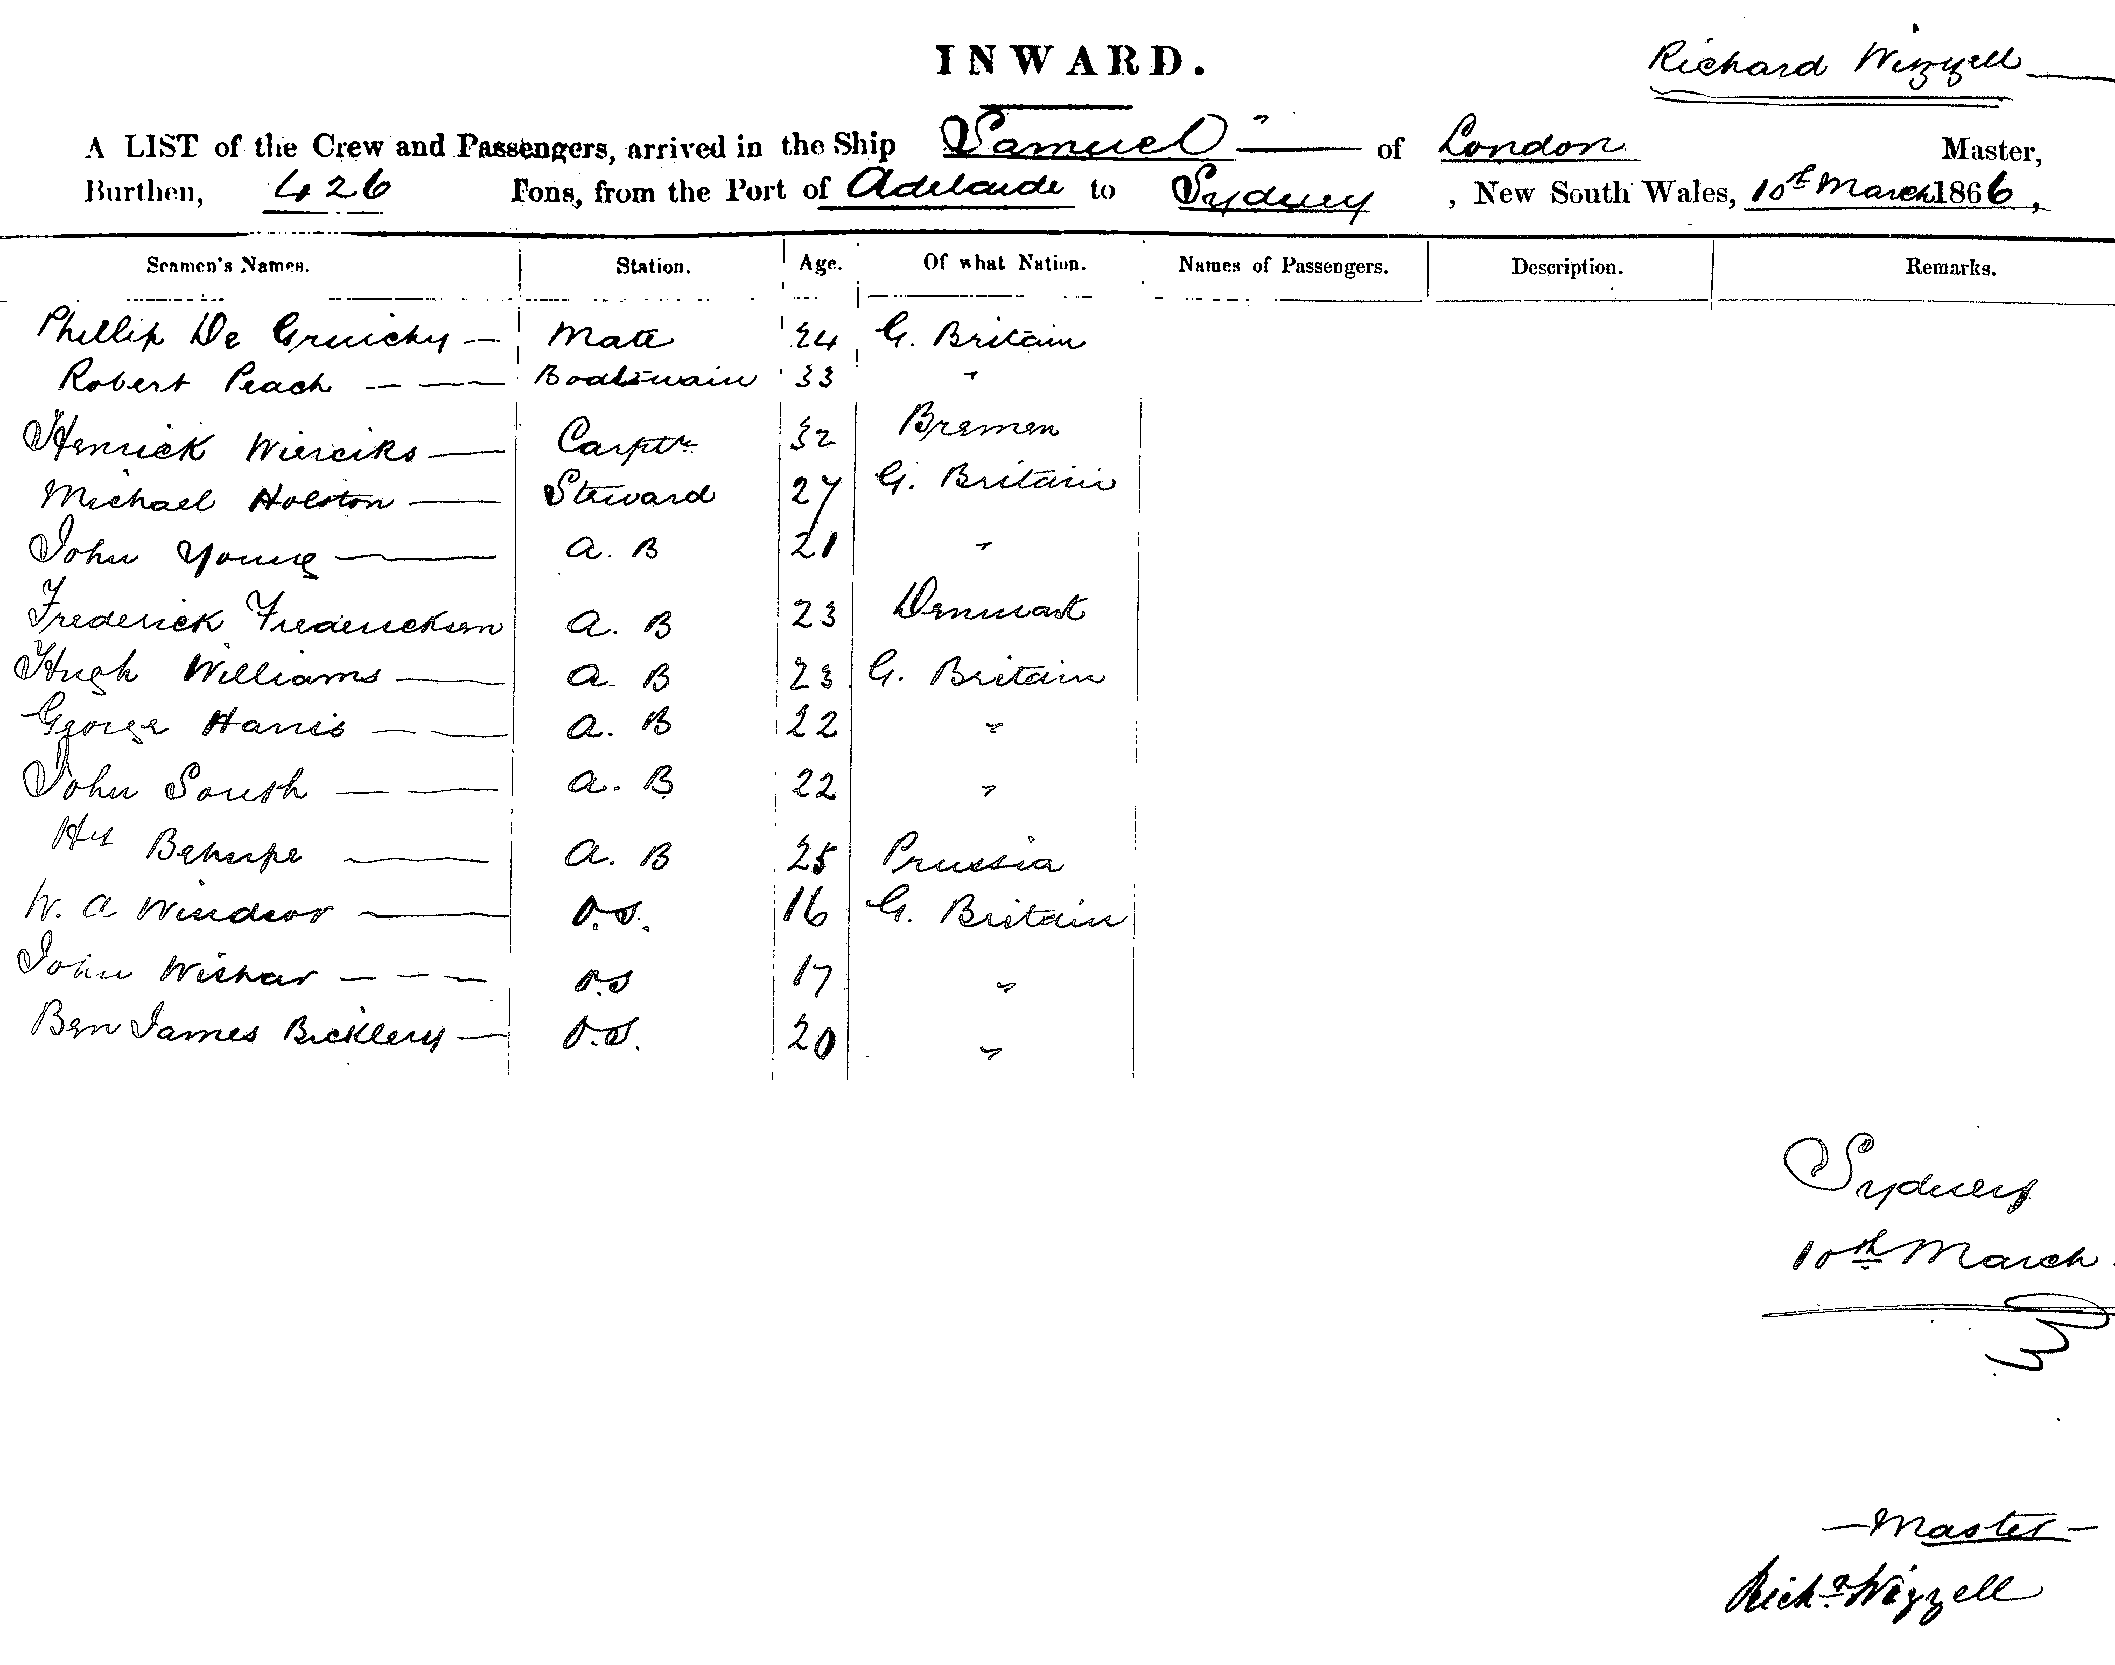 INWARD.
Richard Wizzell
A LIST of the Crew and Passengers, arrived in the Ship Samuel " of London Master,
Burthen, 426 Tons, from the Port of Adelaide to Sydney, New South Wales, 10th March 1866,
Seamen's Names. Station. Age. Of what Nation. Names of Passengers. Description. Remarks.
Phillip De Gruichy — Mate 24 G. Britain
Robert Peach — — Boatswain 33 "
Henrick Wierciks — Carptr 32 Bremen
Michael Holston — Steward 27 G. Britain
John Young — A. B 21 "
Frederick Fredericksen A. B 23 Denmark
Hugh Williams — A B 23 G. Britain
George Harris — — A. B 22 "
John South — — A. B 22 "
A. B 25 Prussia
W. A Windsor — O.S. 16 G. Britain
John Wishar — — — O.S 17 "
Ben James Bicklery — O.S. 20 "
Sydney
10th March
— Master —
Richd Wizzell